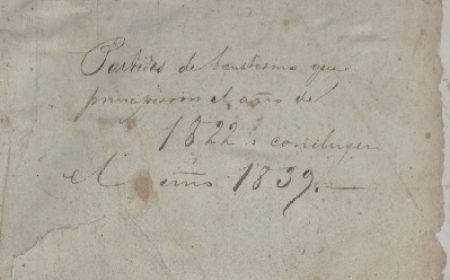 Partidas de bautismo que
principiaron el año de
1822 i concluyen
el año 1839.